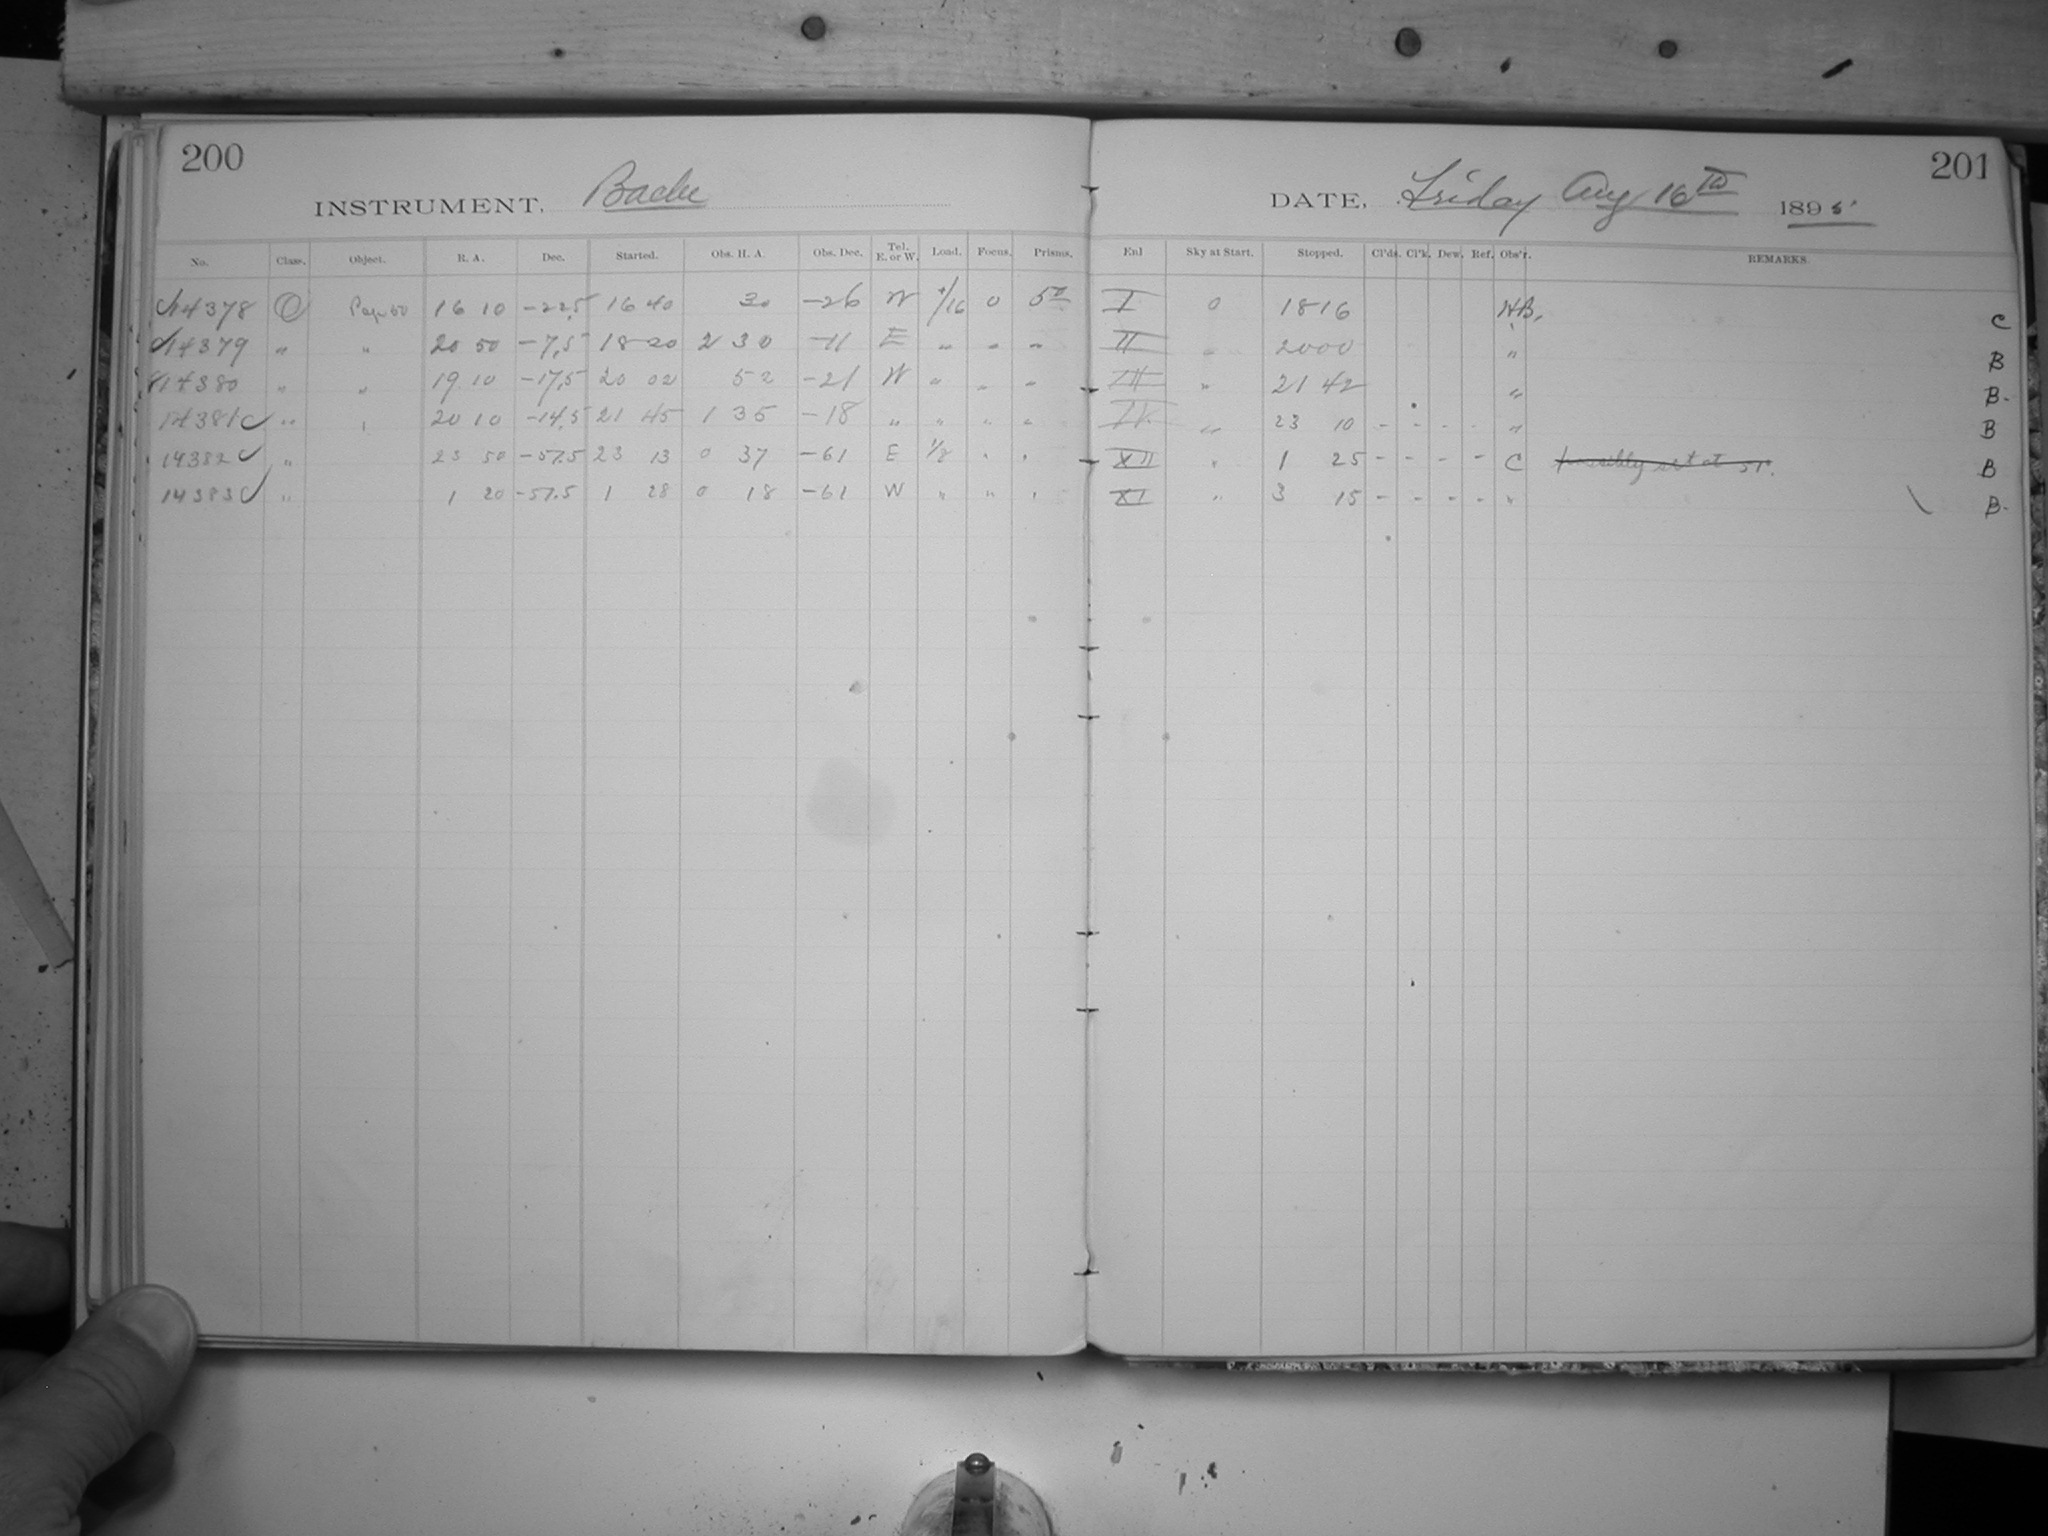 200
INSTRUMENT, Bache
No. Class. Object. R. A. Dec. Started. Obs. H. A. Obs. Dec. Tel. E. or W. Load. Focus. Prisms.
14378 O 16 10 -22.5 16 40 30 -26 W 1/16 0 50
14379 " " 20 50 -7.5 18 20 2 30 -11 E " " "
14380 " " 19 10 -17.5 20 02 52 -21 W " " "
14381 " " 20 10 -14.5 21 45 1 35 -18 " " " "
14382 " 23 50 -57.5 23 13 0 37 -61 E 1/2 " "
14383 " 1 20 -57.5 1 28 0 18 -61 W " " "
201
DATE, Friday Aug 16th 1895
Enl Sky at Start. Stopped. Cl'ds. Cl'k. Dew. Ref. Obs'r. REMARKS.
I 0 18 16 HB. C
II " 20 00 " B
III " 21 42 " B-
IV " 23 10 - - - - " B
XII " 1 25 - - - - C possibly set at 51. B
XI " 3 15 - - - - " \ B-